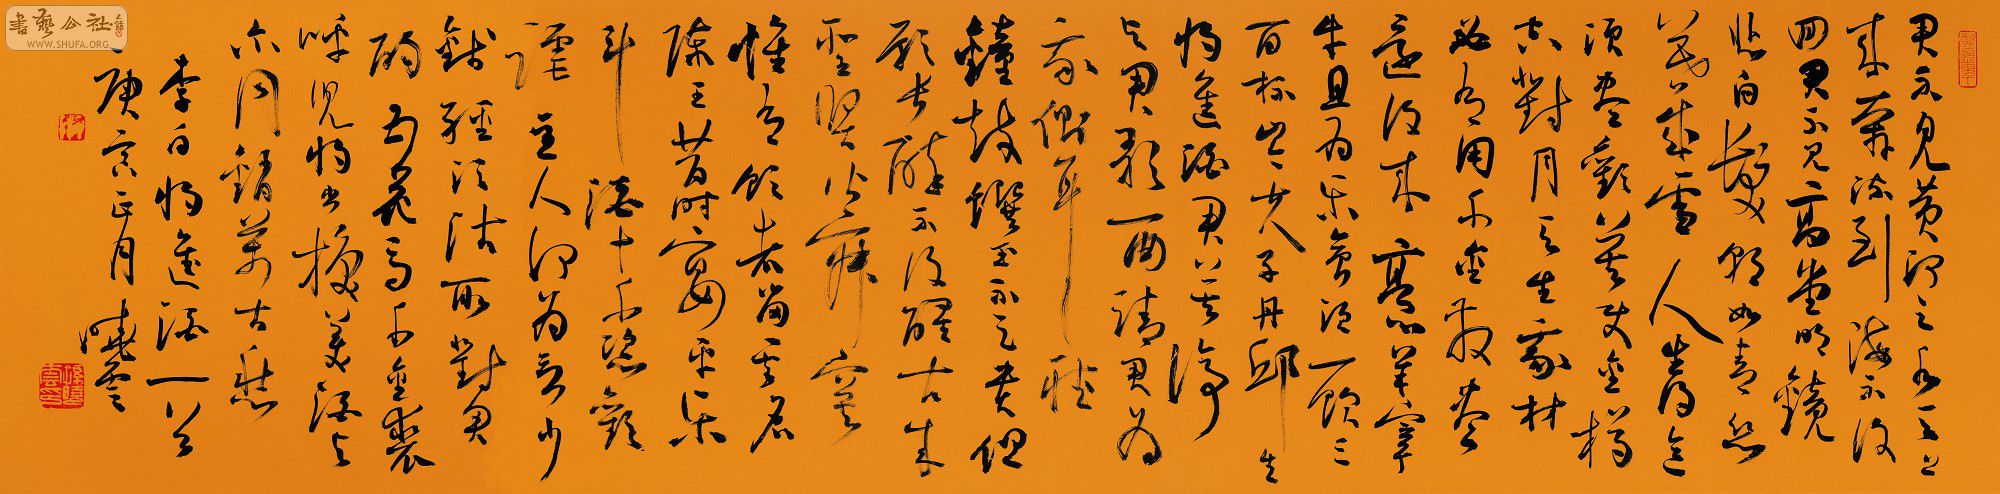 君不見黃河之水天上
來奔流到海不復
回君不見高堂明鏡
悲白髮朝如青絲
暮成雪人生得意
須盡歡莫使金樽
空對月天生我材
必有用千金散盡
還復來烹羊宰
牛且為樂會須一飲三
百杯岑夫子丹邱生
將進酒君莫停
與君歌一曲請君為
我側耳聽
鐘鼓饌玉不足貴但
願長醉不復醒古來
聖賢皆寂寞
惟有飲者留其名
陳王昔時宴平樂
斗酒十千恣歡
謔主人何為言少
錢徑須沽取對君
酌五花馬千金裘
呼兒將出換美酒與
尔同銷萬古愁
李白將進酒一首
庚寅正月曉雲
書藝公社
WWW.SHUFA.ORG